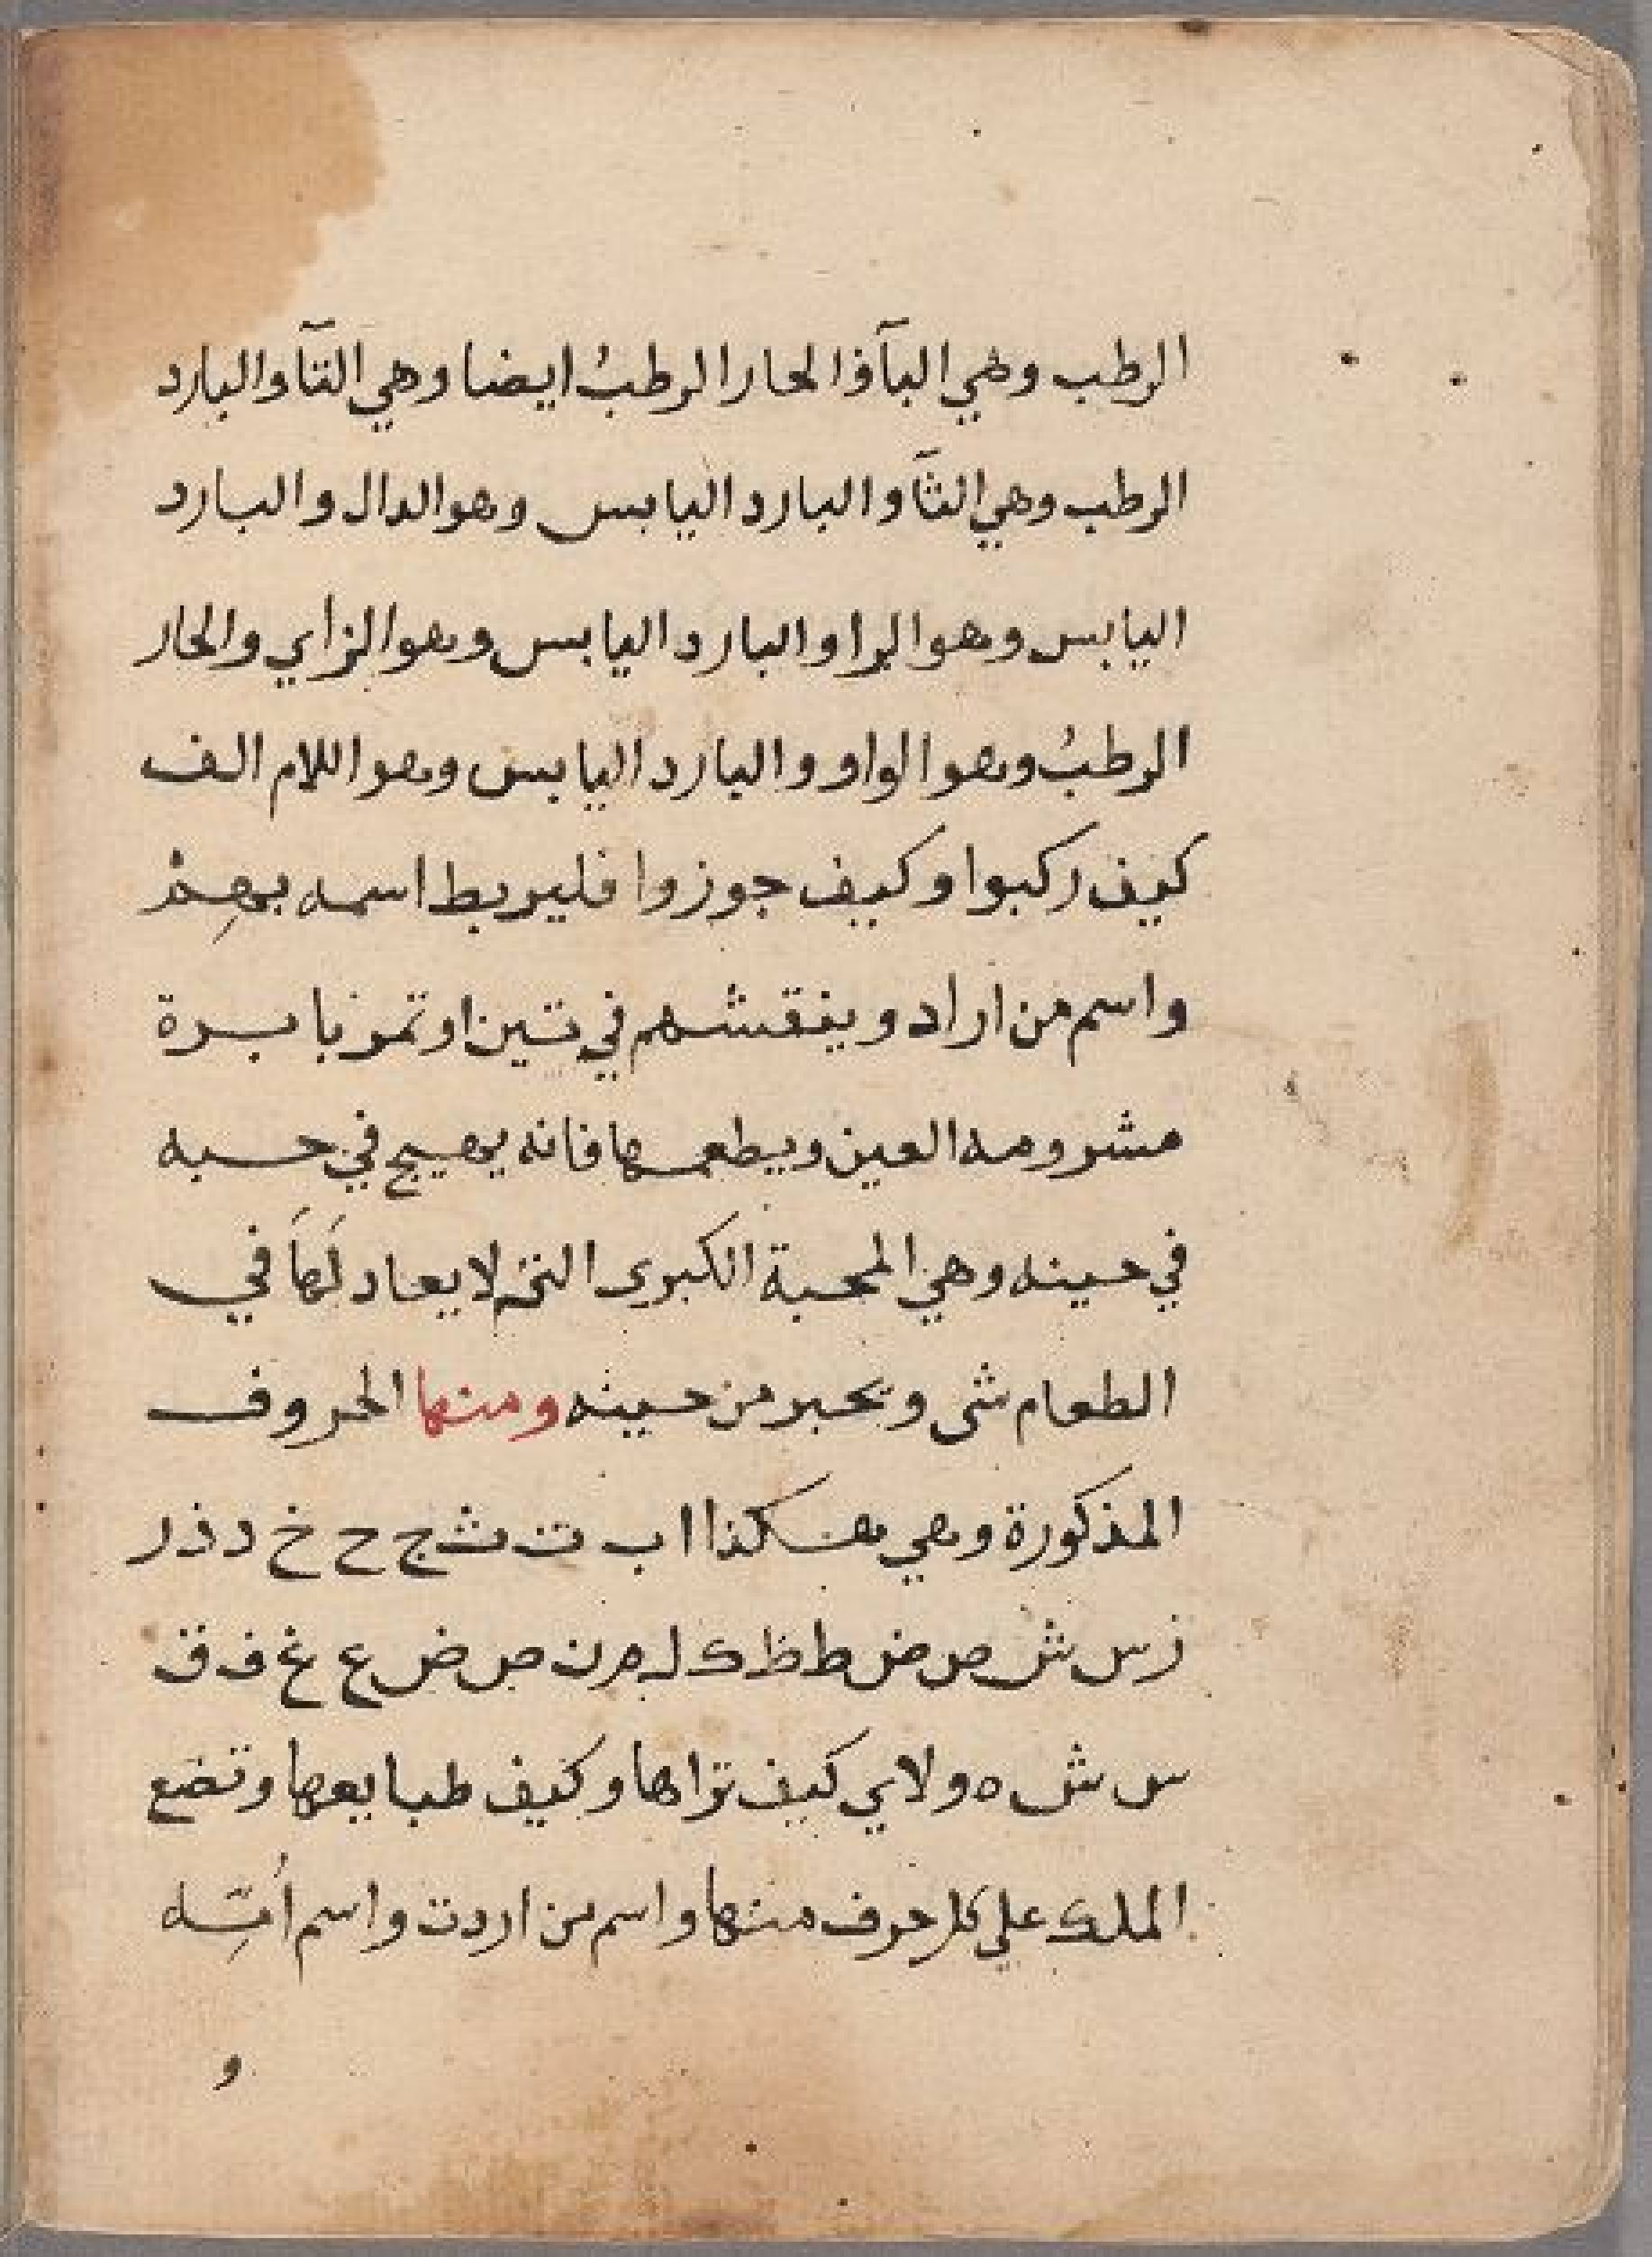 الرطب وهي البآ والحار الرطبُ ايضا وهي التآ والبارد
الرطب وهي الثآ والبارد اليابس وهو الدال والبارد
اليابس وهو الرا والبارد اليابس وهو الزاي والحار
الرطبُ وهو الواو والبارد اليابس وهو اللام الف
كيف ركبوا وكيف جوزوا فليربط اسمه بهِمْ
واسم من اراد وينقشهم في تين او تمر بابرة
مشرومه العين ويطعمها فانه يهيج في حبه
في حينه وهي المحبة الكبرى التي لا يعاد لَهَا في
الطعام شى وتحبر من حينه ومنها الحروف
المذكورة وهي هكذا اب ت ث ج ح خ د ذ ر
ز س ش ص ض ط ظ ك ل م ن ص ض ع غ ف ق
س ش ه و لا ي كيف تراها وكيف طبايعها وتضع
الملك علي كل حرف منها واسم من اردت واسم اُمِّه
و